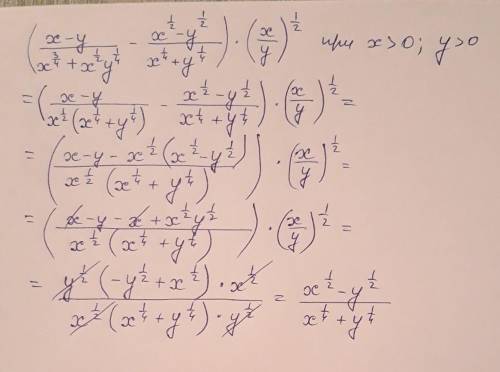 (x-y / x^(3/4) + x^(1/2)y^(1/4) - x^(1/2) - y^(1/2) / x^(1/4) + y^(1/4)) · (x/y)^(1/2) при x>0; y>0
= (x-y / x^(1/2)(x^(1/4) + y^(1/4)) - x^(1/2) - y^(1/2) / x^(1/4) + y^(1/4)) · (x/y)^(1/2) =
= (x-y - x^(1/2)(x^(1/2) - y^(1/2)) / x^(1/2)(x^(1/4) + y^(1/4))) · (x/y)^(1/2) =
= (x - y - x + x^(1/2)y^(1/2) / x^(1/2)(x^(1/4) + y^(1/4))) · (x/y)^(1/2) =
= y^(1/2)(-y^(1/2) + x^(1/2)) · x^(1/2) / x^(1/2)(x^(1/4) + y^(1/4)) · y^(1/2) = x^(1/2) - y^(1/2) / x^(1/4) + y^(1/4)